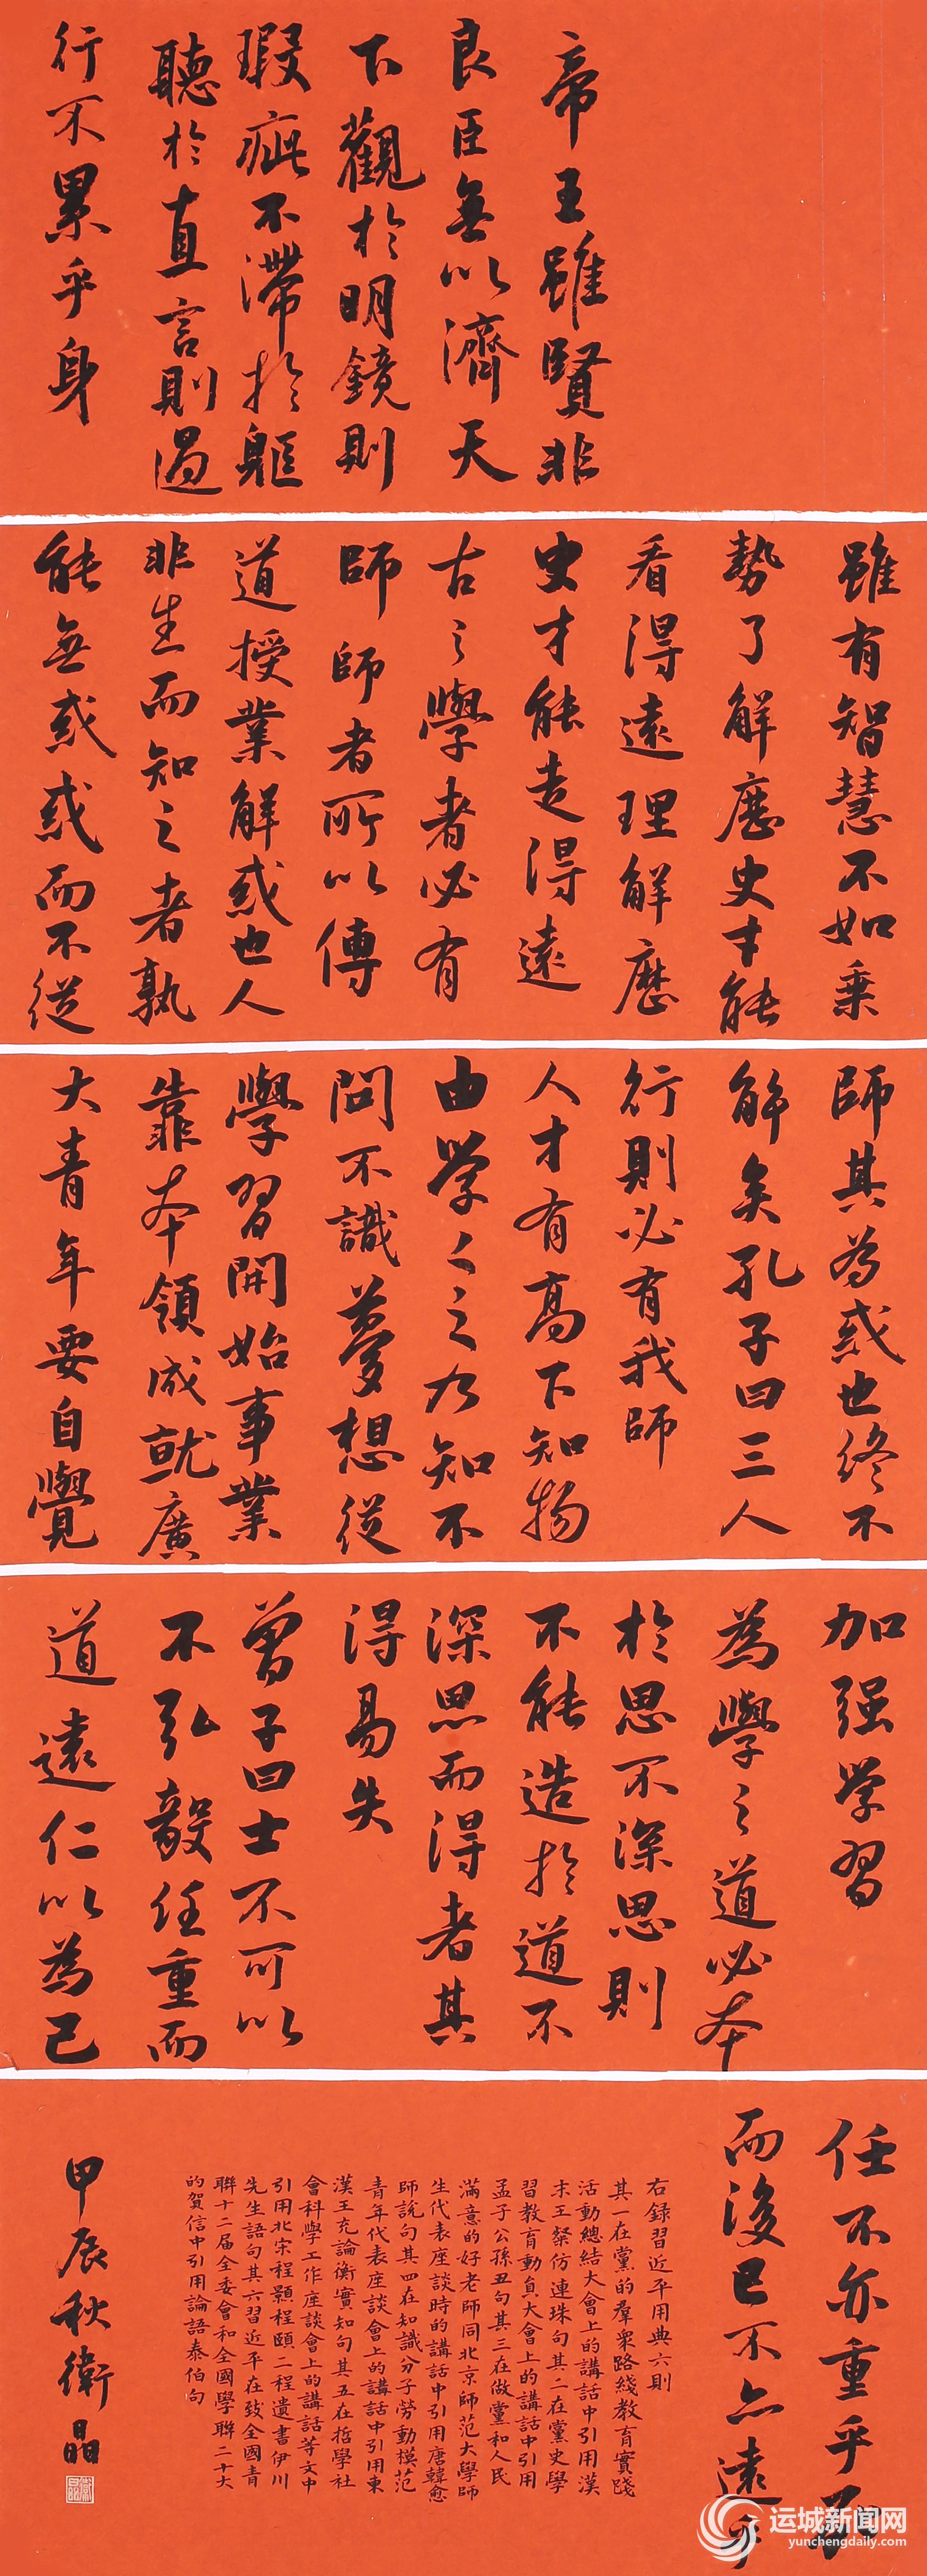 帝王雖賢非
良臣無以濟天
下觀於明鏡則
瑕疵不滯於軀
聽於直言則過
行不累乎身
雖有智慧不如乗
勢了解歷史才能
看得遠理解歷
史才能走得遠
古之學者必有
師師者所以傳
道授業解惑也人
非生而知之者孰
能無惑惑而不從
師其為惑也終不
解矣孔子曰三人
行則必有我師
人才有高下知物
由学学之乃知不
問不識夢想從
學習開始事業
靠本領成就廣
大青年要自覺
加强学習
為學之道必本
於思不深思則
不能造於道不
深思而得者其
得易失
曾子曰士不可以
不弘毅任重而
道遠仁以為己
任不亦重乎死
而後已不亦遠乎
右録習近平用典六則
其一在黨的羣衆路綫教育實踐
活動總結大會上的講話中引用漢
末王粲仿連珠句其二在黨史學
習教育動員大會上的講話中引用
孟子公孫丑句其三在做黨和人民
滿意的好老師同北京師范大學師
生代表座談時的講話中引用唐韓愈
師説句其四在知識分子勞動模范
青年代表座談會上的講話中引用東
漢王充論衡實知句其五在哲學社
會科學工作座談會上的講話等文中
引用北宋程顥程頤二程遺書伊川
先生語句其六習近平在致全國青
聯十二届全委會和全國學聯二十大
的賀信中引用論語泰伯句
甲辰秋衛晶
运城新闻网
yunchengdaily.com